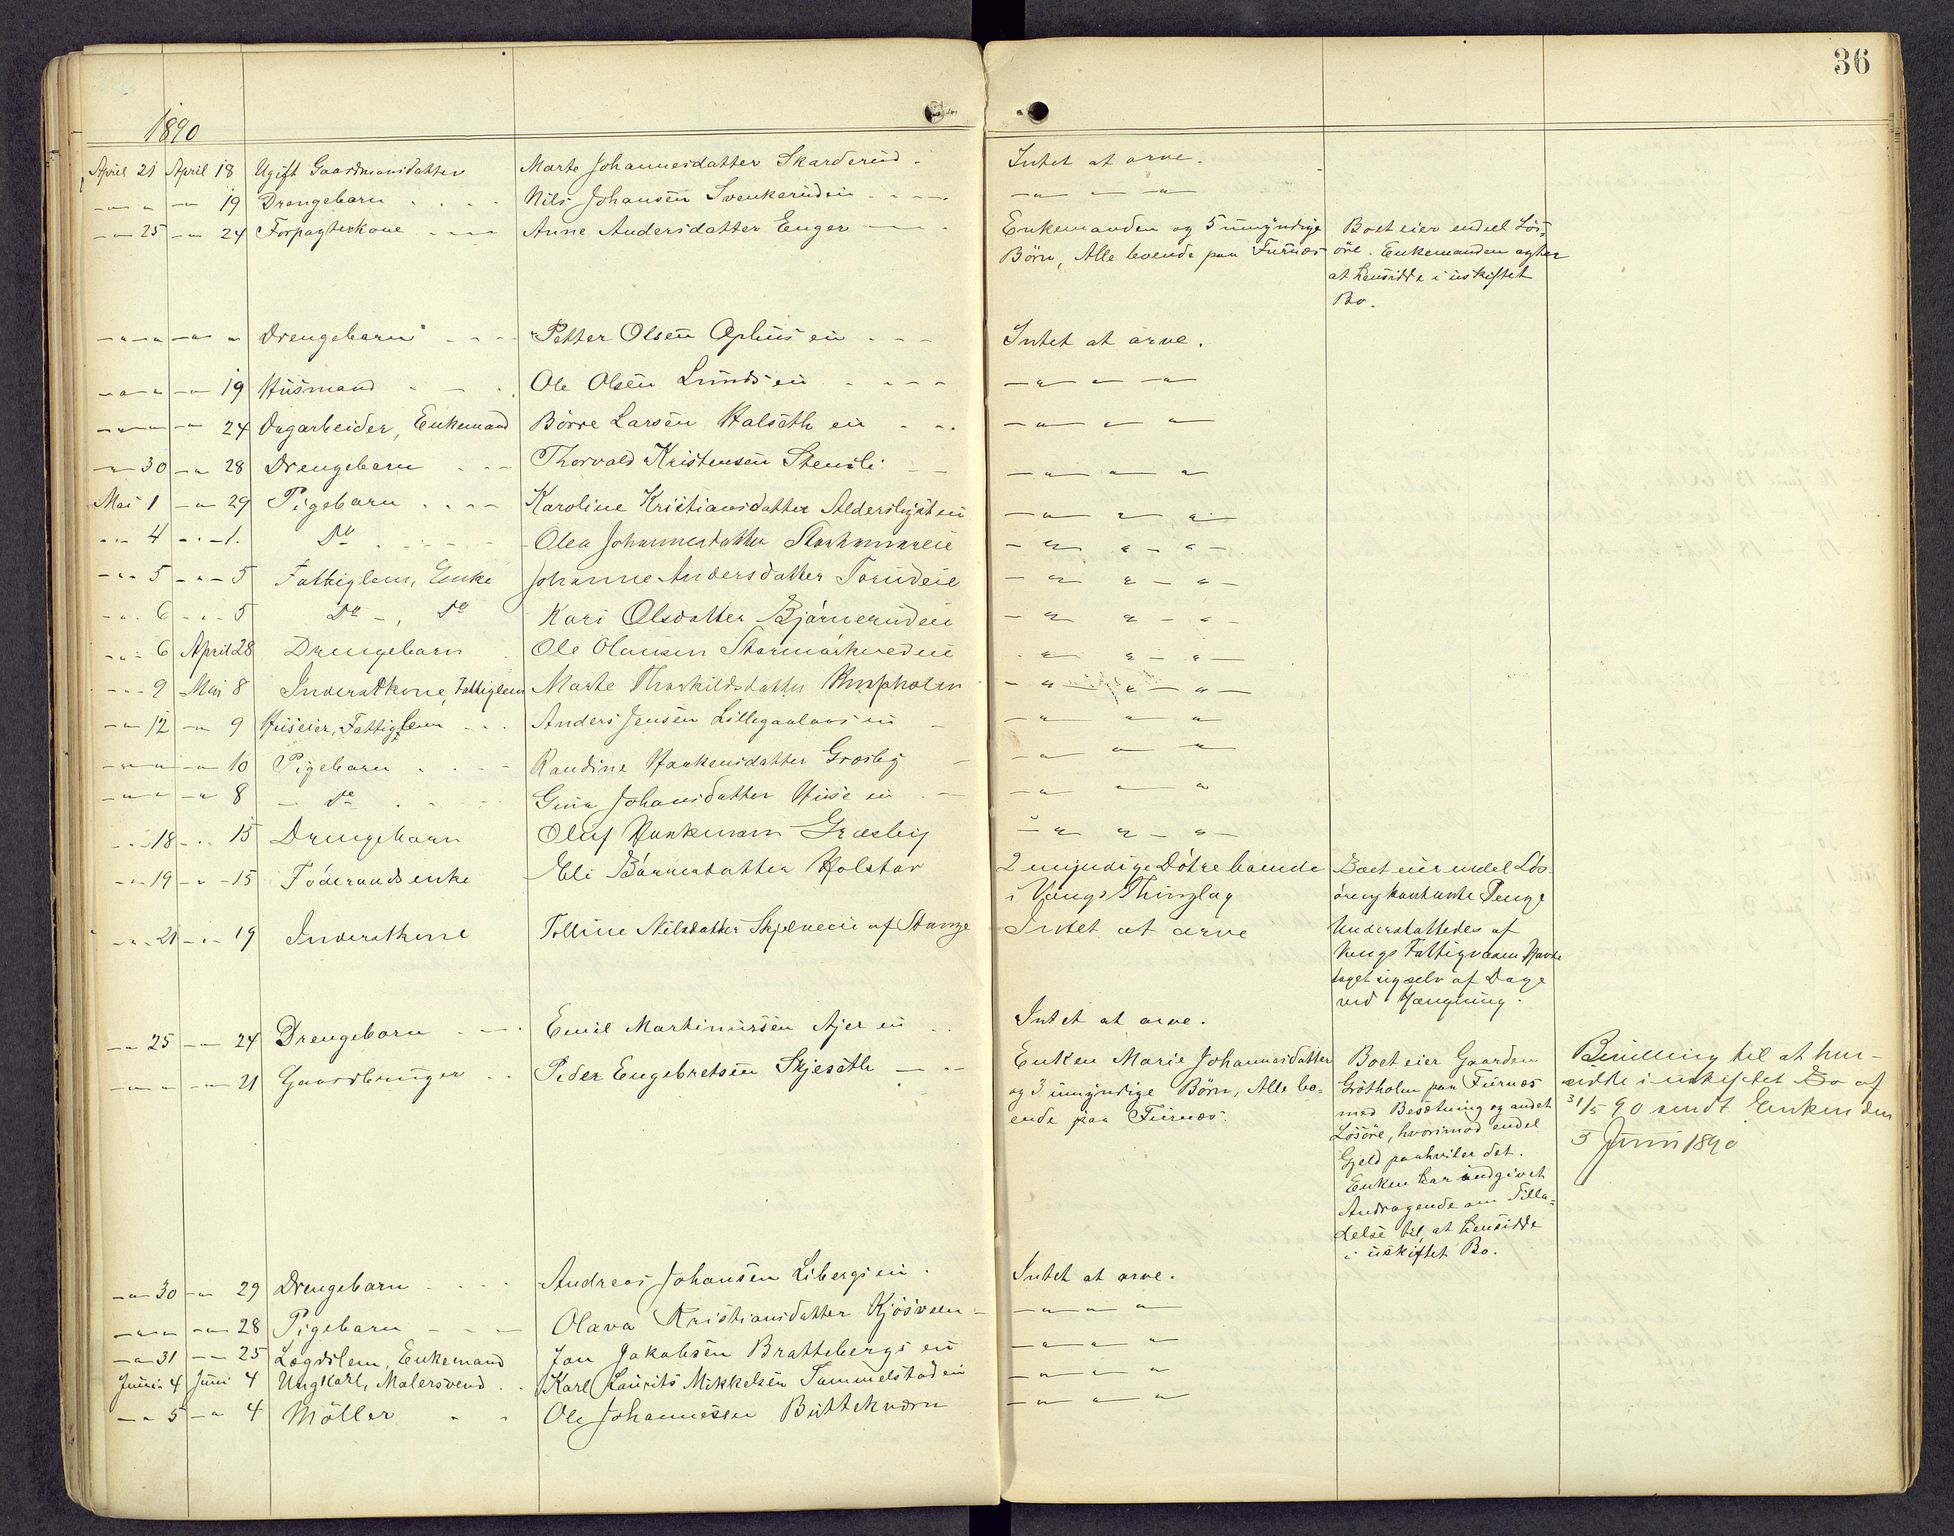 36
1890
April 21 April 18 Ugift Gaardmandsdatter Marte Johannesdatter Skarderud - Intet at arve.
— " " — " 19 Drengebarn Nils Johansen Svenkerudein — " — " — "
— " 25 — " 24 Forpagterkone Anne Andersdatter Enger Enkemanden og 5 umyndige Boet eier endeel Løs-
Børn, Alle boende paa Furnæs øre. Enkemanden agter
at hensidde i uskiftet
Bo.
— " — " — " " Drengebarn Petter Olsen Ophus ein Intet at arve.
— " — " — " 19 Husmand Ole Olsen Lunds ein — " — " — "
— " — " — " 24 Dagarbeider, Enkemand Børre Larsen Halseth ein — " — " — "
— " 30 — " 28 Drengebarn Thorvald Kristensen Stensli — " — " — "
Mai 1 — " 29 Pigebarn Karoline Kristiansdatter Alderslyst ein — " — " — "
— " 4 — " 1. Do Olea Johannesdatter — " — " — "
— " 5 — " 5 Fattiglem, Enke Johanne Andersdatter Torudeie — " — " — "
— " 6 — " 5 Do —, Do Kari Olsdatter Bjørnerudeie — " — " — "
— " 6 April 28 Drengebarn Ole Olausen — " — " — "
— " 9 Mai 8 Inderstkone, Fattiglem Marte Thorkildsdatter — " — " — "
— " 12 — " 9 Huseier, Fattiglem Anders Jensen Lillegaardsein — " — " — "
— " " — " 10 Pigebarn Randine Haakensdatter Græsby — " — " — "
— " " — " 8 — Do Gina Johansdatter Huse ein — " — " — "
— " 18 — " 15 Drengebarn Oluf Haakensen Græsby — " — " — "
— " 19 — " 15 Føderaadsenke Eli Bårnesdatter Holstad 2 myndige Døtre boende Boet eier endel Løs-
i Vangs Thinglag øre og kontante Penge
— " 21 — " 19 Inderstkone Polline Nilsdatter Skjelveeie af Stange Intet at arve Understøttedes af
Vangs Fattigvæsen. Havde
taget sig selv af Dage
ved Hængning.
— " 25 — " 24 Drengebarn Emil Martinussen Ajer ein Intet at arve.
— " " — " 21 Gaardbruger Peder Engebretsen Skjeseth Enken Marie Johannesdatter Boet eier Gaarden Bevilling til at hen-
og 3 umyndige Børn, Alle bo- Grøtholm paa Furnæs sidde i uskiftet Bo af
ende paa Furnæs. med Besætning og andet 31/5 90 sendt Enken den
Løsøre, hvorimod endel 5 Juni 1890
Gjeld paahviler det.
Enken har indgivet
Andragende om Tilla-
delse til, at hensidde
i uskiftet Bo.
— " 30 — " 29 Drengebarn Andreas Johansen Libergs ein. Intet at arve.
— " " — " 28 Pigebarn Olava Kristiansdatter Kjøsveen — " — " — "
— " 31 — " 25 Lægdslem, Enkemand Jan Jakobsen Brattebergs ein — " — " — "
Juni 4 Juni 4 Ungkarl, Malersvend Karl Laurits Mikkelsen Tommelstad ein — " — " — "
— " 5 — " 4 Møller Ole Johannessen Büttekværn — " — " — "